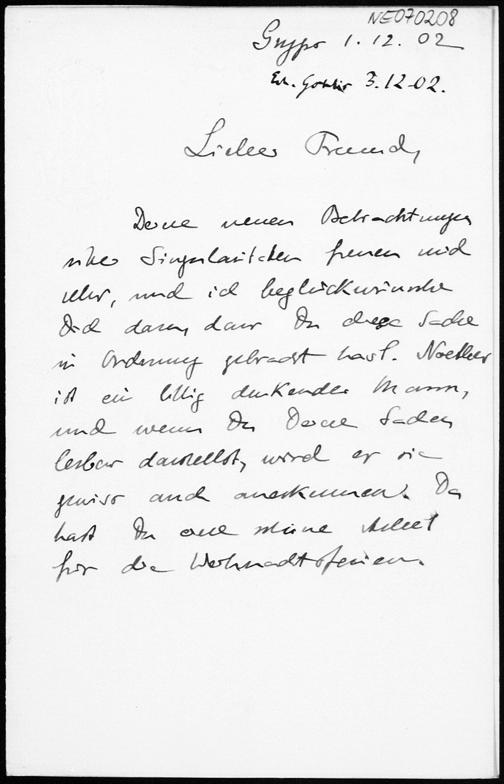 NE070208
1. 12. 02
3.12.02.
Lieber Freund,
Deine neuen Betrachtungen
über Singularitäten freuen mich
sehr, und ich beglückwünsche
Dich dazu, dass Du diese Sache
in Ordnung gebracht hast. Noether
ist ein billig denkender Mann,
und wenn Du Deine Sachen
lesbar darstellst, wird er sie
gewiss auch anerkennen. Da
hast Du eine schöne Arbeit
für die Weihnachtsferien.